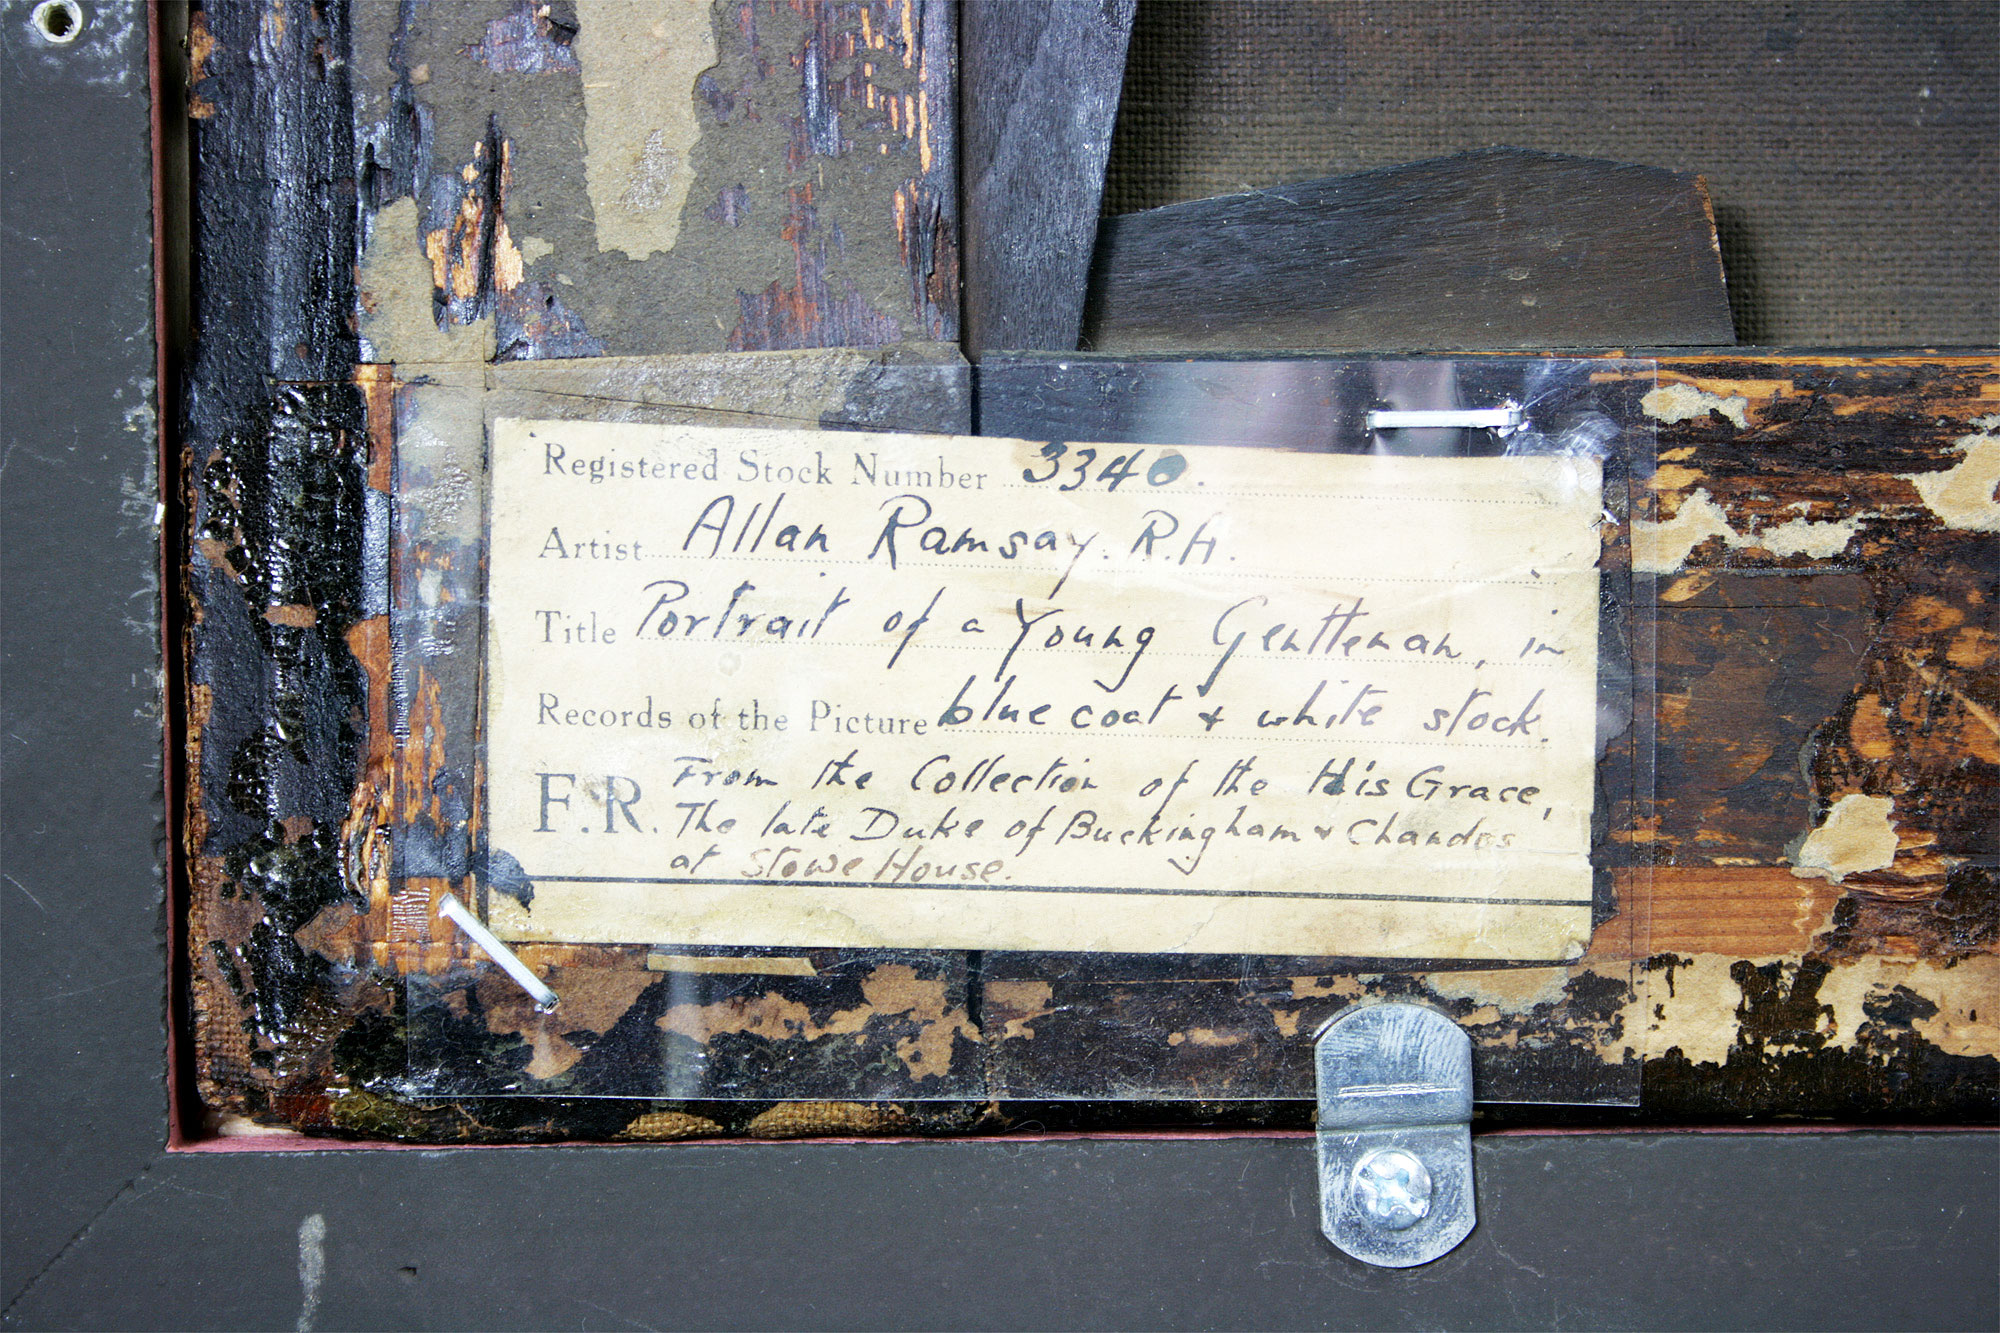 Registered Stock Number 3340.
Artist Allan Ramsay. R.A.
Title Portrait of a Young Gentleman, in
Records of the Picture blue coat & white stock.
F.R. From the Collection of the His Grace,
The late Duke of Buckingham & Chandos
at Stowe House.